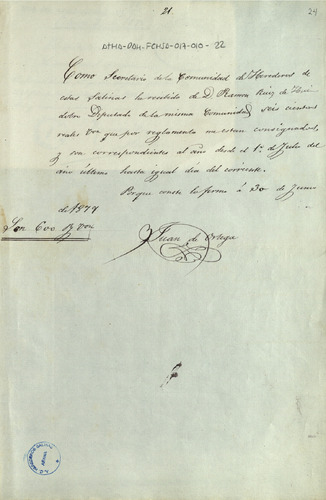 21.
24
ATHA-DAH-FCHSA-017-010-22
Como Secretario de la Comunidad de Herederos de
estas Salinas he recibido de D. Ramon Ruiz de
dobro Diputado de la misma Comunidad seis cientos
reales von que por reglamento me estan consignados,
y son correspondientes al año desde el 1º de Julio del
año último hasta igual dia del corriente.
Porque conste lo firmo á 30 de Junio
de 1877
Son 600 Rs von
Juan de Ortega